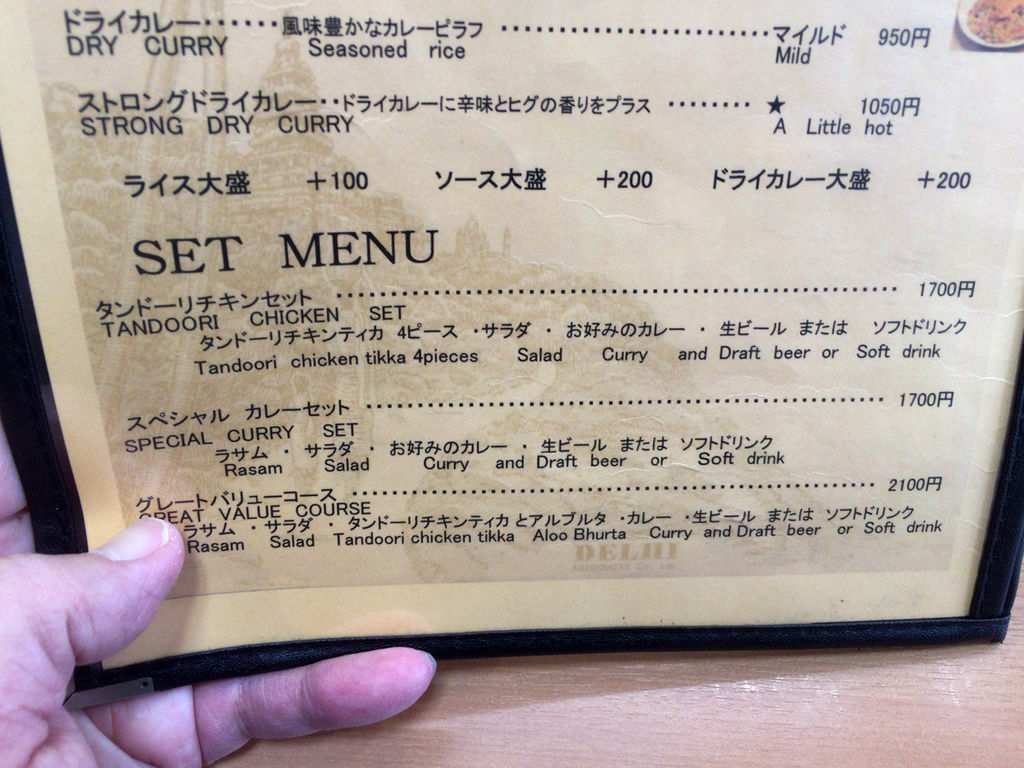 ドライカレー・・・・・・風味豊かなカレーピラフ ・・・・・・・・・・・・・・・・・・・・・・・・・・・マイルド 950円
DRY CURRY Seasoned rice Mild
ストロングドライカレー・・ドライカレーに辛味とヒグの香りをプラス ・・・・・・・・ ★ 1050円
STRONG DRY CURRY A Little hot
ライス大盛 +100 ソース大盛 +200 ドライカレー大盛 +200
SET MENU
タンドーリチキンセット ・・・・・・・・・・・・・・・・・・・・・・・・・・・・・・・・・・・・・・・・・・・・・・・・・・ 1700円
TANDOORI CHICKEN SET
タンドーリチキンティカ 4ピース ・サラダ ・ お好みのカレー ・ 生ビール または ソフトドリンク
Tandoori chicken tikka 4pieces Salad Curry and Draft beer or Soft drink
スペシャル カレーセット ・・・・・・・・・・・・・・・・・・・・・・・・・・・・・・・・・・・・・・・・・・・・・・ 1700円
SPECIAL CURRY SET
ラサム ・ サラダ ・ お好みのカレー ・ 生ビール または ソフトドリンク
Rasam Salad Curry and Draft beer or Soft drink
グレートバリューコース ・・・・・・・・・・・・・・・・・・・・・・・・・・・・・・・・・・・・・・・・・・・・・・ 2100円
GREAT VALUE COURSE
ラサム ・サラダ ・ タンドーリチキンティカ とアルブルタ ・カレー ・生ビール または ソフトドリンク
Rasam Salad Tandoori chicken tikka Aloo Bhurta Curry and Draft beer or Soft drink
DELHI
ASSOCIATES Co. Ltd.